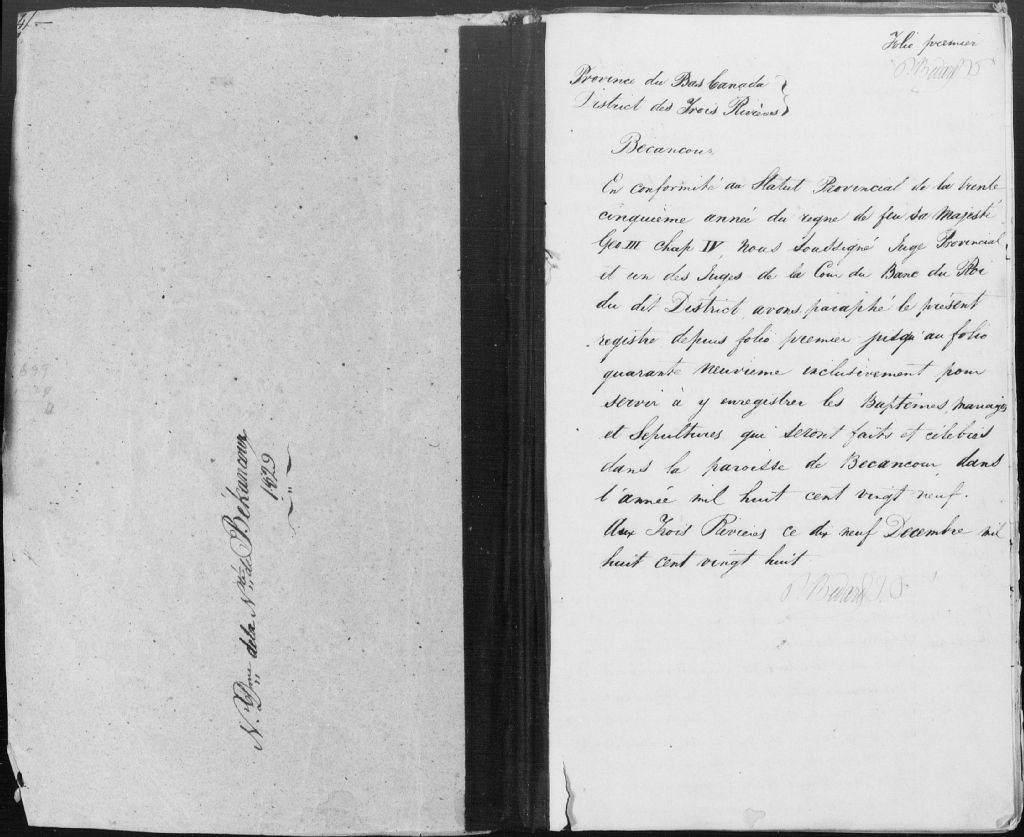 N. Dme de la Nté de Békancour
1829
Folio premier
P. Bedard J.P.
Province du Bas Canada
District des Trois Rivières
Becancour
En conformité au Statut Provincial de la trente
cinquième année du regne de feu Sa Majesté
Geo. III Chap IV Nous Soussigné Juge Provincial
et un des Juges de la Cour du Banc du Roi
du dit District, avons paraphé le présent
registre depuis folio premier jusqu'au folio
quarante neuvieme inclusivement pour
servir à y enregistrer les Baptêmes, Mariages
et Sepultures qui seront faits et célébrés
dans la paroisse de Becancour dans
l'année mil huit cent vingt neuf.
Aux Trois Rivieres ce dix neuf Decembre mil
huit cent vingt huit
P. Bedard J.P.